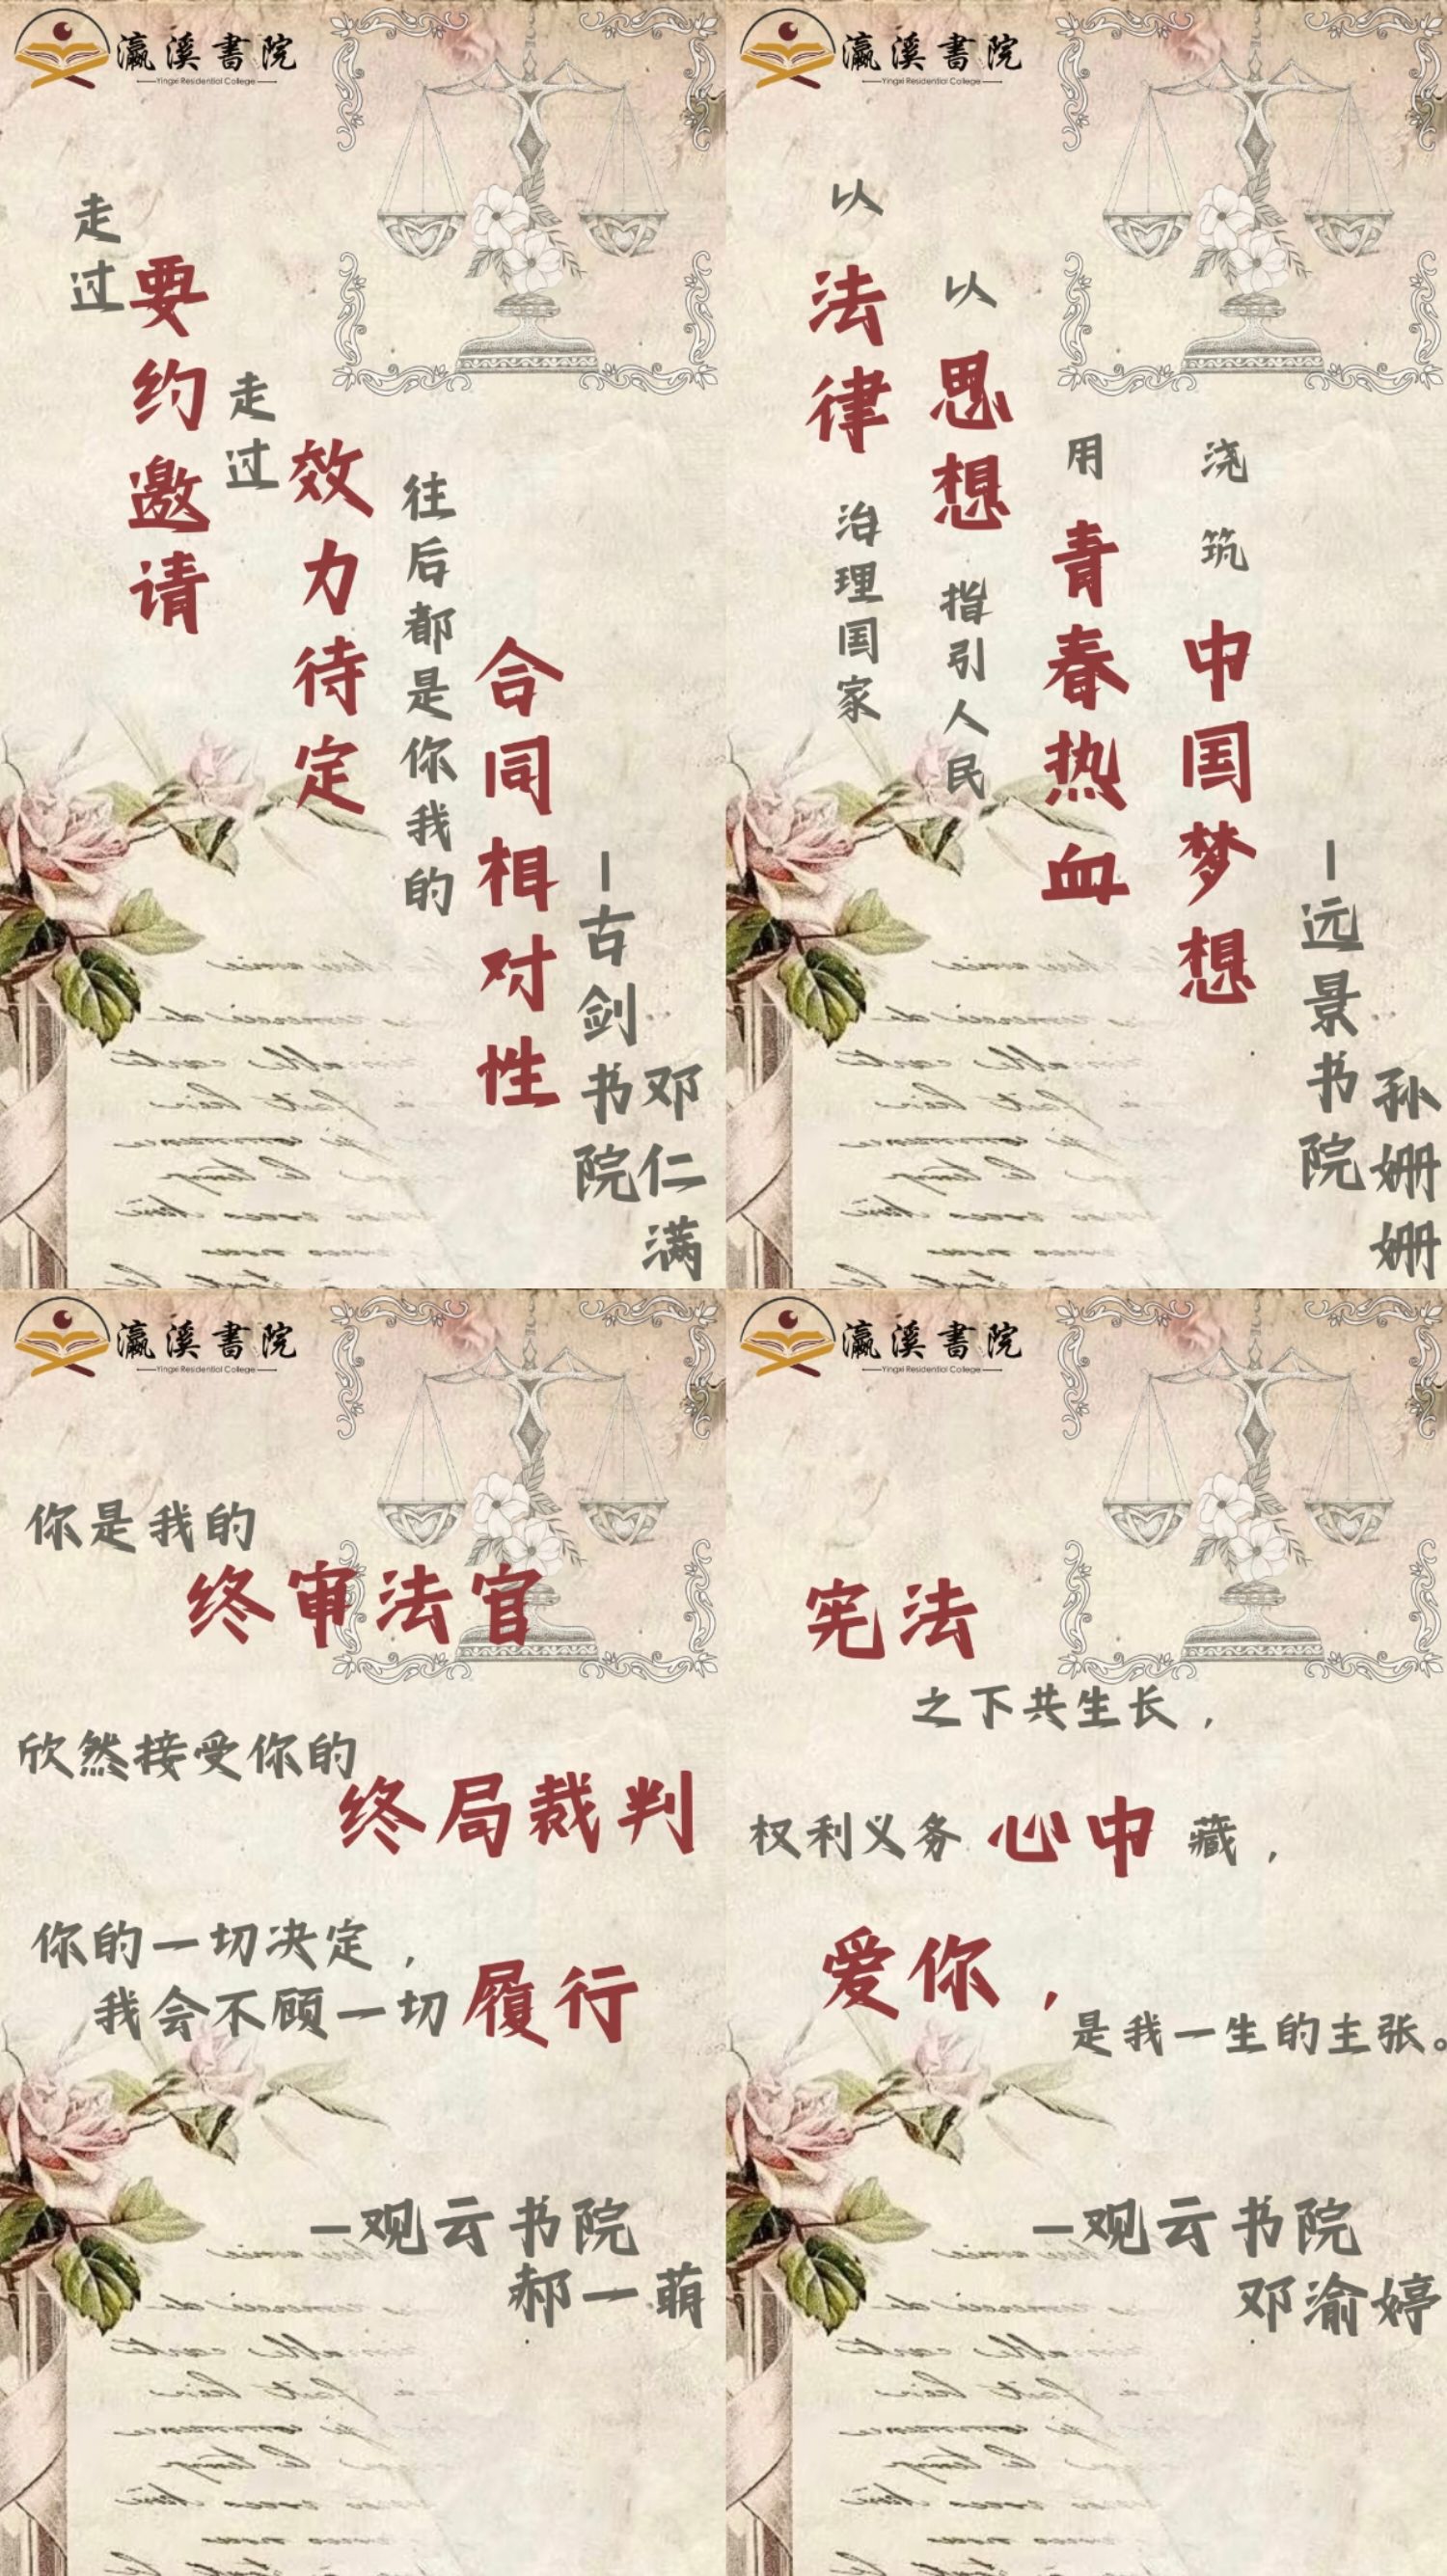 瀛溪書院
Yingxi Residential College
走过
要约邀请
走过
效力待定
往后都是你我的
合同相对性
—古剑书院
邓仁满
瀛溪書院
Yingxi Residential College
以
法律
治理国家
以
思想
指引人民
用
青春热血
浇筑
中国梦想
—远景书院
孙姗姗
瀛溪書院
Yingxi Residential College
你是我的
终审法官
欣然接受你的
终局裁判
你的一切决定，
我会不顾一切履行
—观云书院
郝一萌
瀛溪書院
Yingxi Residential College
宪法
之下共生长，
权利义务心中藏，
爱你，
是我一生的主张。
—观云书院
邓渝婷